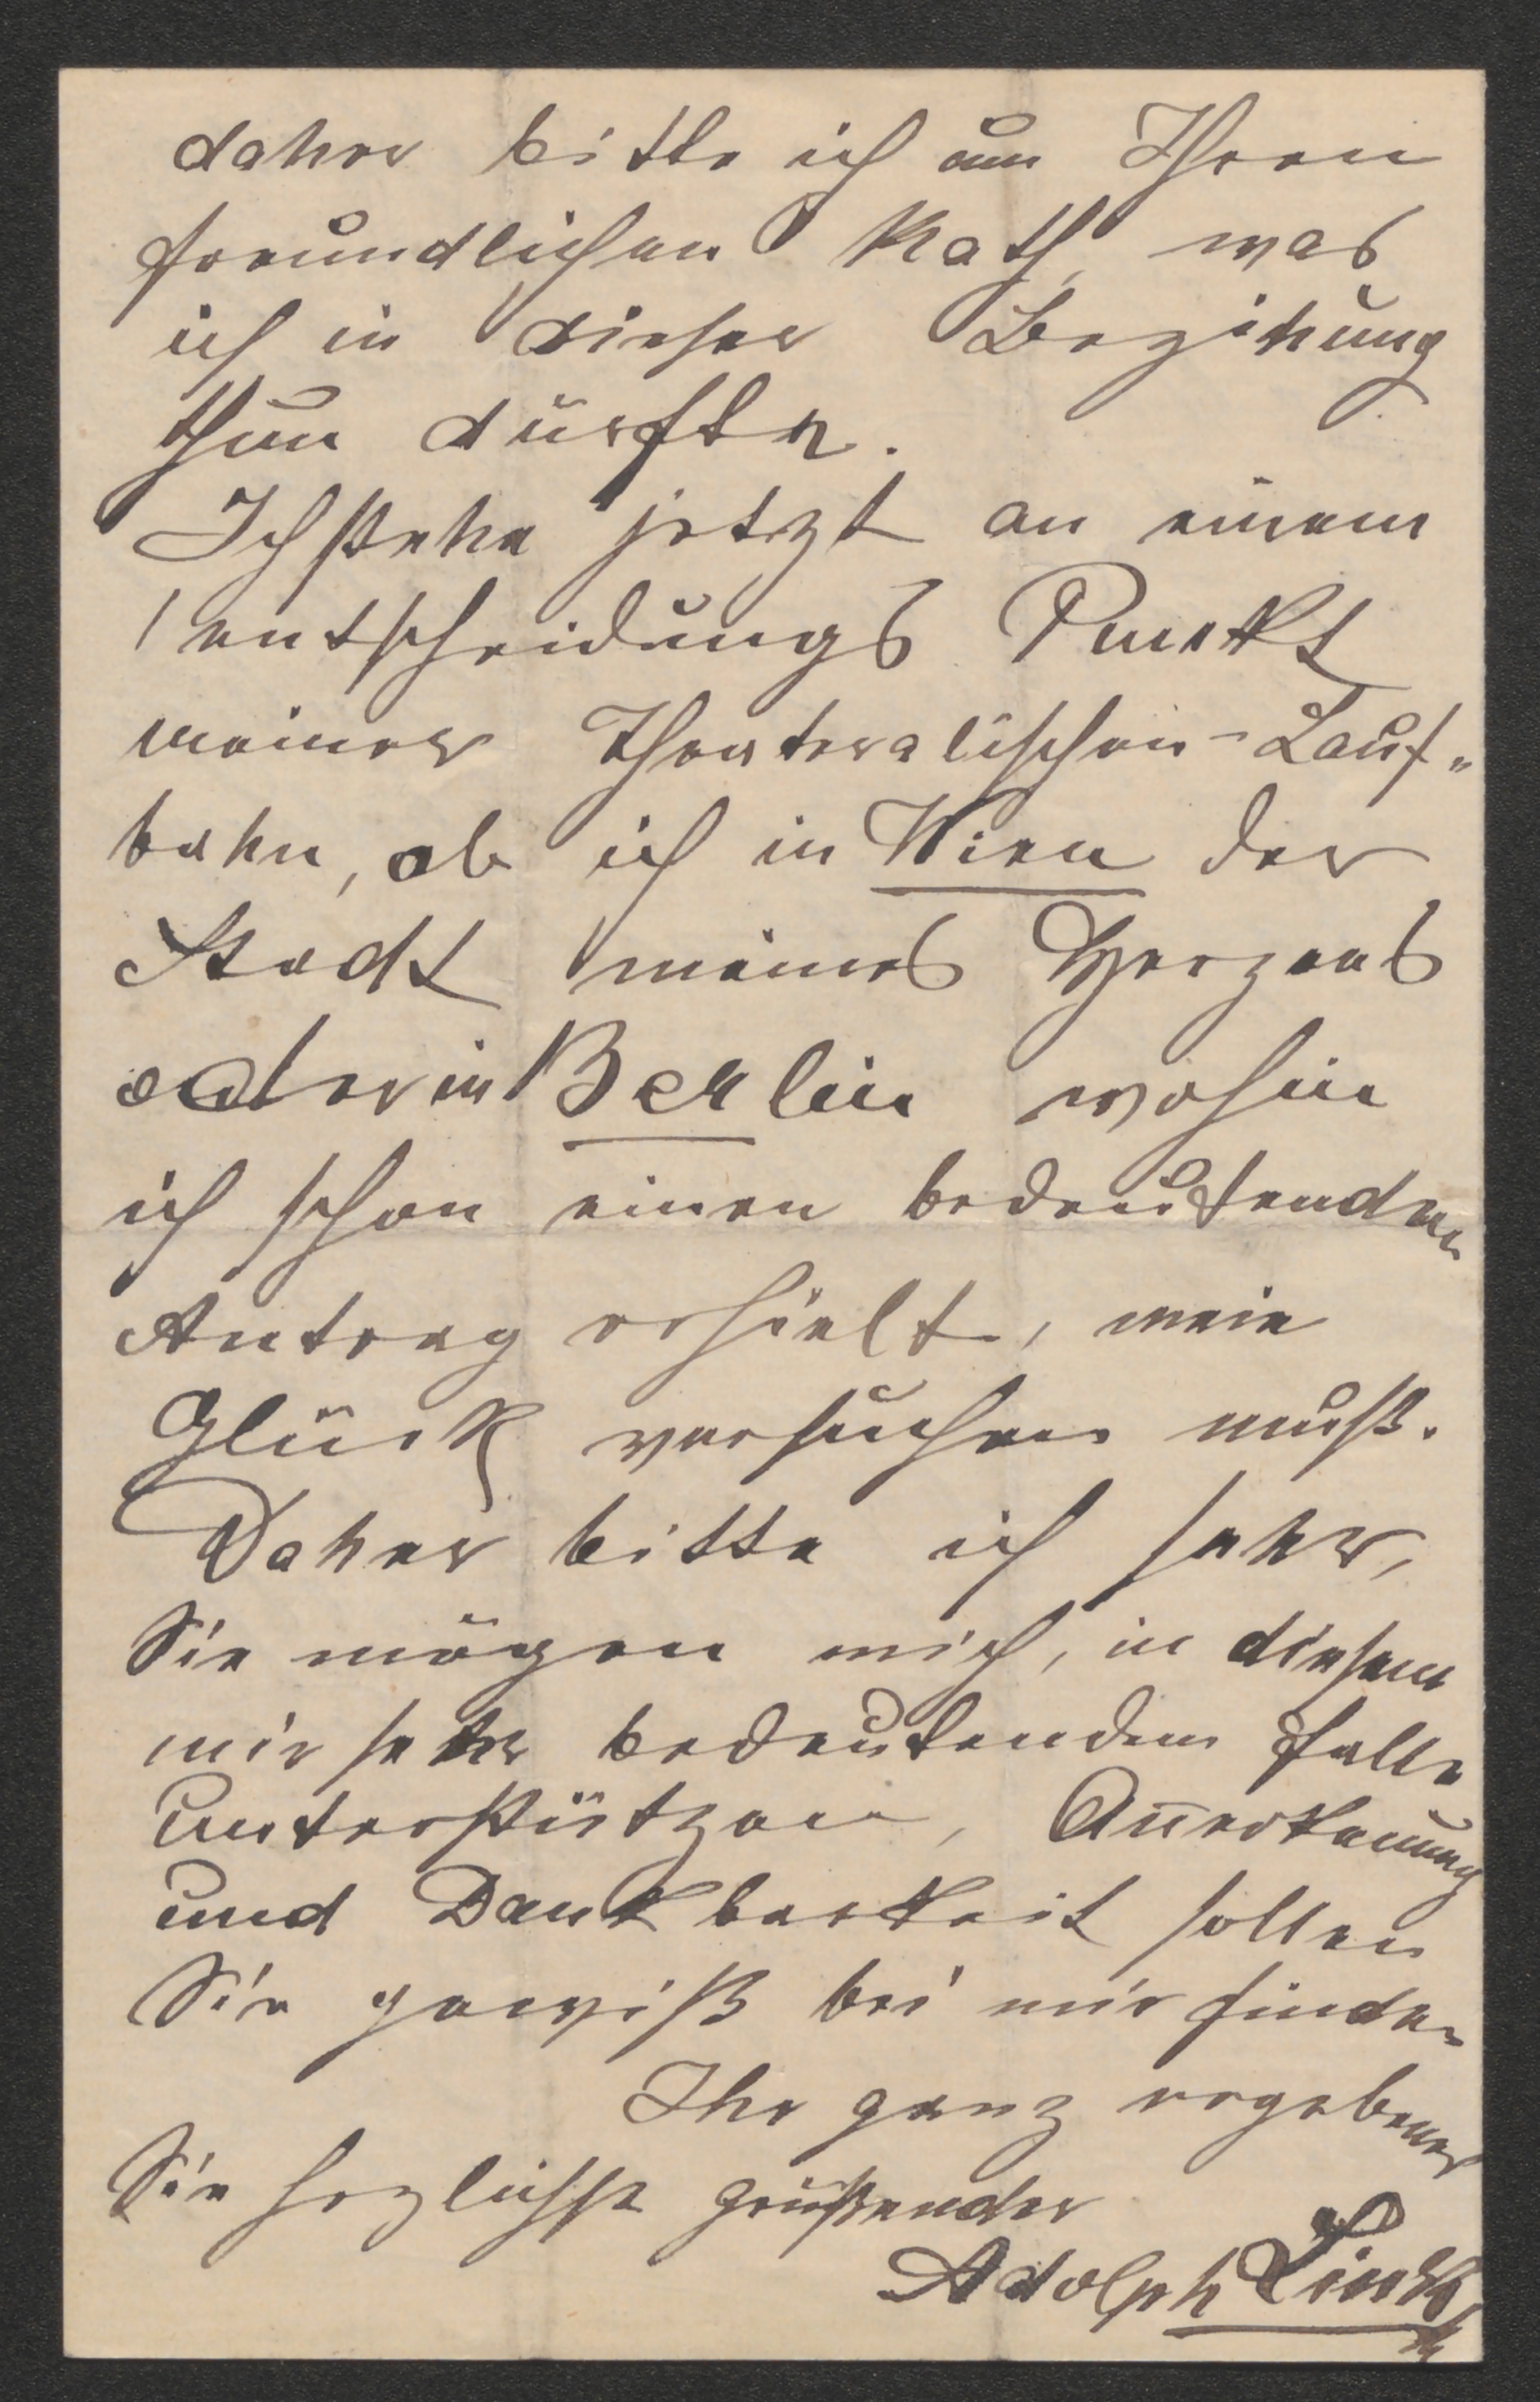 daher bitte ich um Ihren
freundlichen Rath, was
ich in dieser Bezihung
thun dürfte.
Ich stehe jetzt an einem
entscheidungs Punkt
meiner Theatralischen-Lauf„
bahn, ob ich in Wien der
Stadt meines Herzens
oder in Berlin wohin
ich schon einen bedeutenden
Antrag erhielt, mein
Glück versuchen muß.
Daher bitte ich sehr,
Sie mögen mich, in diesem
mir sehr bedeutendem Falle
unterstützen, Anerkennung
und Dankbarkeit sollen
Sie gewiß bei mir finden
Ihr ganz ergebener
Sie herzlichst grüßender
Adolph Link